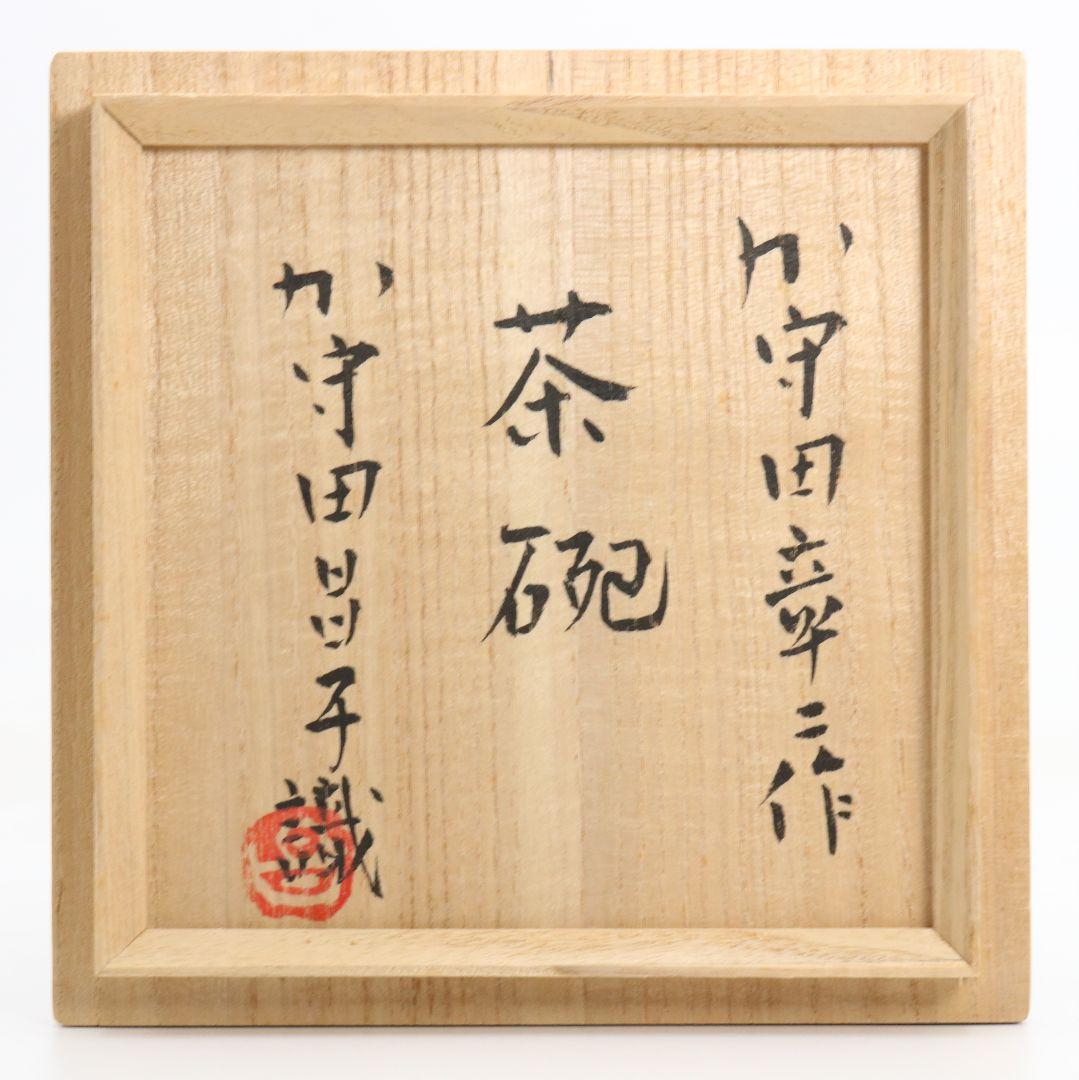 か守田章二作
茶碗
か守田昌子識